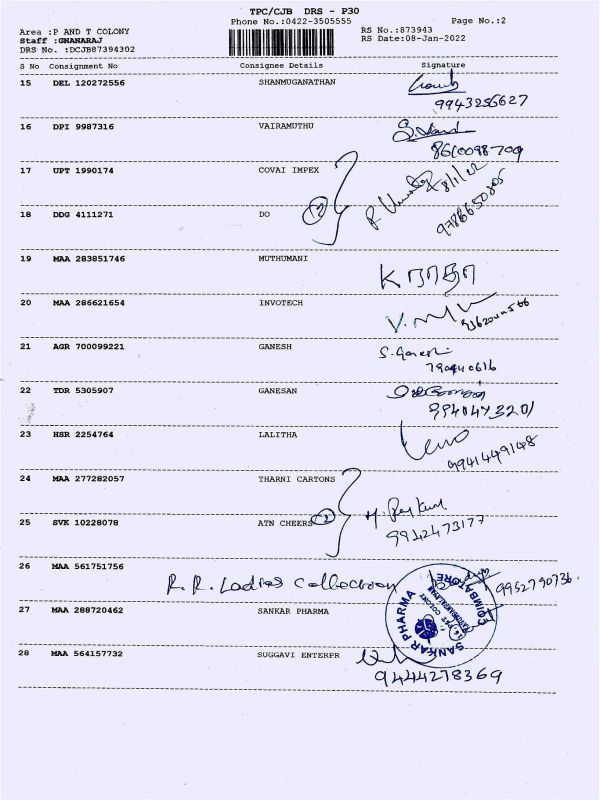 TPC/CJB DRS - P30
Phone No.:0422-3505555
Page No.:2
Area :P AND T COLONY
Staff :GNANARAJ
DRS No. :DCJB87394302
RS No.:873943
RS Date:08-Jan-2022
S No Consignment No Consignee Details Signature
15 DEL 120272556 SHANMUGANATHAN
9943256627
16 DPI 9987316 VAIRAMUTHU
8610098709
17 UPT 1990174 COVAI IMPEX
8/1/22
18 DDG 4111271 DO
19 MAA 283851746 MUTHUMANI
K ராதா
20 MAA 286621654 INVOTECH
21 AGR 700099221 GANESH
S. Ganesh
22 TDR 5305907 GANESAN
9940473201
23 HSR 2254764 LALITHA
9941449148
24 MAA 277282057 THARNI CARTONS
25 SVK 10228078 ATN CHEERS
9942473177
26 MAA 561751756
R.R. Ladies Collection
9952790736
27 MAA 288720462 SANKAR PHARMA
SANKAR PHARMA
COIMBATORE
28 MAA 564157732 SUGGAVI ENTERPR
9444278369